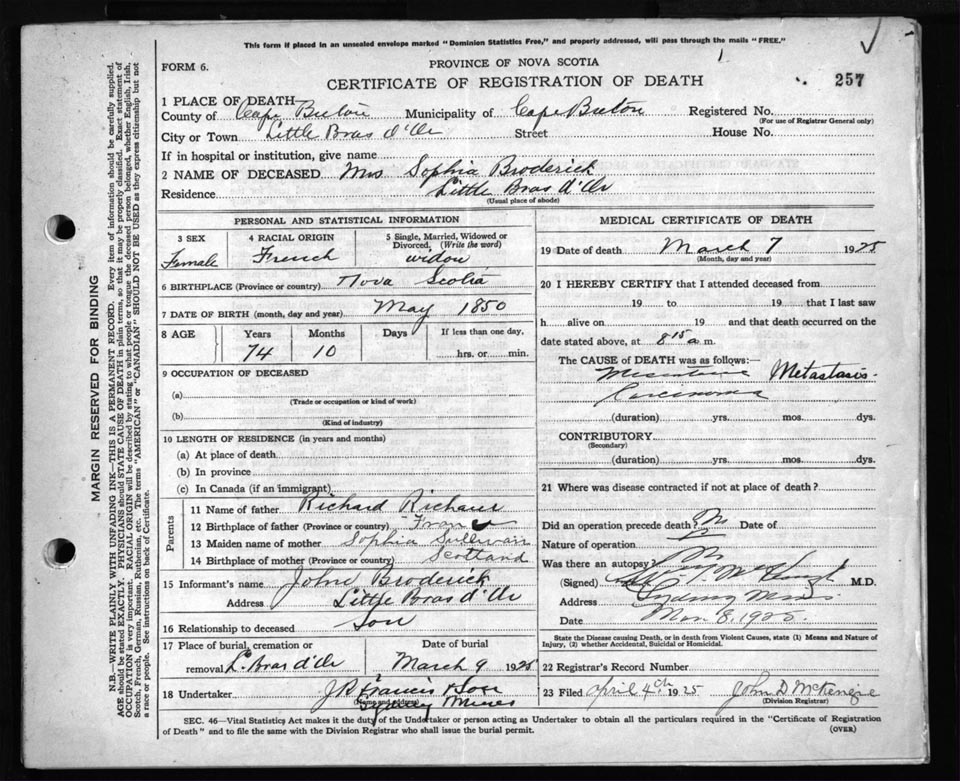 This form if placed in an unsealed envelope marked "Dominion Statistics Free," and properly addressed, will pass through the mails "FREE."
FORM 6.
PROVINCE OF NOVA SCOTIA
CERTIFICATE OF REGISTRATION OF DEATH
257
1 PLACE OF DEATH
County of Cape Breton Municipality of Cape Breton Registered No.
(For use of Registrar General only)
City or Town Little Bras d'Or Street House No.
If in hospital or institution, give name
2 NAME OF DECEASED Mrs Sophia Broderick
Residence Little Bras d'Or
(Usual place of abode)
PERSONAL AND STATISTICAL INFORMATION
3 SEX 4 RACIAL ORIGIN 5 Single, Married, Widowed or Divorced, (Write the word)
Female French widow
6 BIRTHPLACE (Province or country) Nova Scotia
7 DATE OF BIRTH (month, day and year) May 1850
8 AGE Years Months Days If less than one day,
74 10 hrs. or min.
9 OCCUPATION OF DECEASED
(a)
(Trade or occupation or kind of work)
(b)
(Kind of industry)
10 LENGTH OF RESIDENCE (in years and months)
(a) At place of death
(b) In province
(c) In Canada (if an immigrant)
Parents
11 Name of father Richard
12 Birthplace of father (Province or country) France
13 Maiden name of mother Sophia Sullivan
14 Birthplace of mother (Province or country) Scotland
15 Informant's name John Broderick
Address Little Bras d'Or
16 Relationship to deceased Son
17 Place of burial, cremation or removal L. Bras d'Or
Date of burial March 9 1925
18 Undertaker J R Francis & Son
(Name and address) Sydney Mines
MEDICAL CERTIFICATE OF DEATH
19 Date of death March 7 1925
(Month, day and year)
20 I HEREBY CERTIFY that I attended deceased from
19 to 19 that I last saw
h alive on 19 and that death occurred on
date stated above, at 8 15 a. m.
The CAUSE OF DEATH was as follows:—
Metastasis
Carcinoma
(duration) yrs. mos. dys.
CONTRIBUTORY
(Secondary)
(duration) yrs. mos. dys.
21 Where was disease contracted if not at place of death?
Did an operation precede death? No Date of
Nature of operation
Was there an autopsy? No
(Signed) M.D.
Address Sydney Mines
Date Mar. 8, 1925.
State the Disease causing Death, or in death from Violent Causes, state (1) Means and Nature of Injury, (2) whether Accidental, Suicidal or Homicidal.
22 Registrar's Record Number
23 Filed April 4th 1925 John D. McKenzie
(Division Registrar)
SEC. 46—Vital Statistics Act makes it the duty of the Undertaker or person acting as Undertaker to obtain all the particulars required in the "Certificate of Registration
of Death" and to file the same with the Division Registrar who shall issue the burial permit.
(OVER)
MARGIN RESERVED FOR BINDING
N.B.—WRITE PLAINLY WITH UNFADING INK—THIS IS A PERMANENT RECORD. Every item of information should be carefully supplied.
AGE should be stated EXACTLY. PHYSICIANS should STATE CAUSE OF DEATH in plain terms, so that it may be properly classified. Exact statement of
OCCUPATION is very important. RACIAL ORIGIN will be described by stating to what people or tongue the deceased person belonged, whether English, Irish,
Scotch, French, German, Russian, Ruthenian, etc. The terms "AMERICAN" or "CANADIAN" SHOULD NOT BE USED as they express citizenship but not
a race or people. See instructions on back of Certificate.